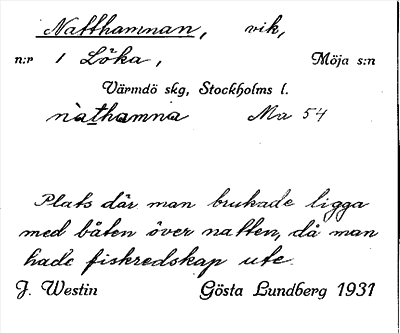 Natthamnan, vik,
n:r 1 Löka, Möja s:n
Värmdö skg, Stockholms l.
nàthamna Ma 54
Plats där man brukade ligga
med båten över natten, då man
hade fiskredskap ute.
J. Westin Gösta Lundberg 1931